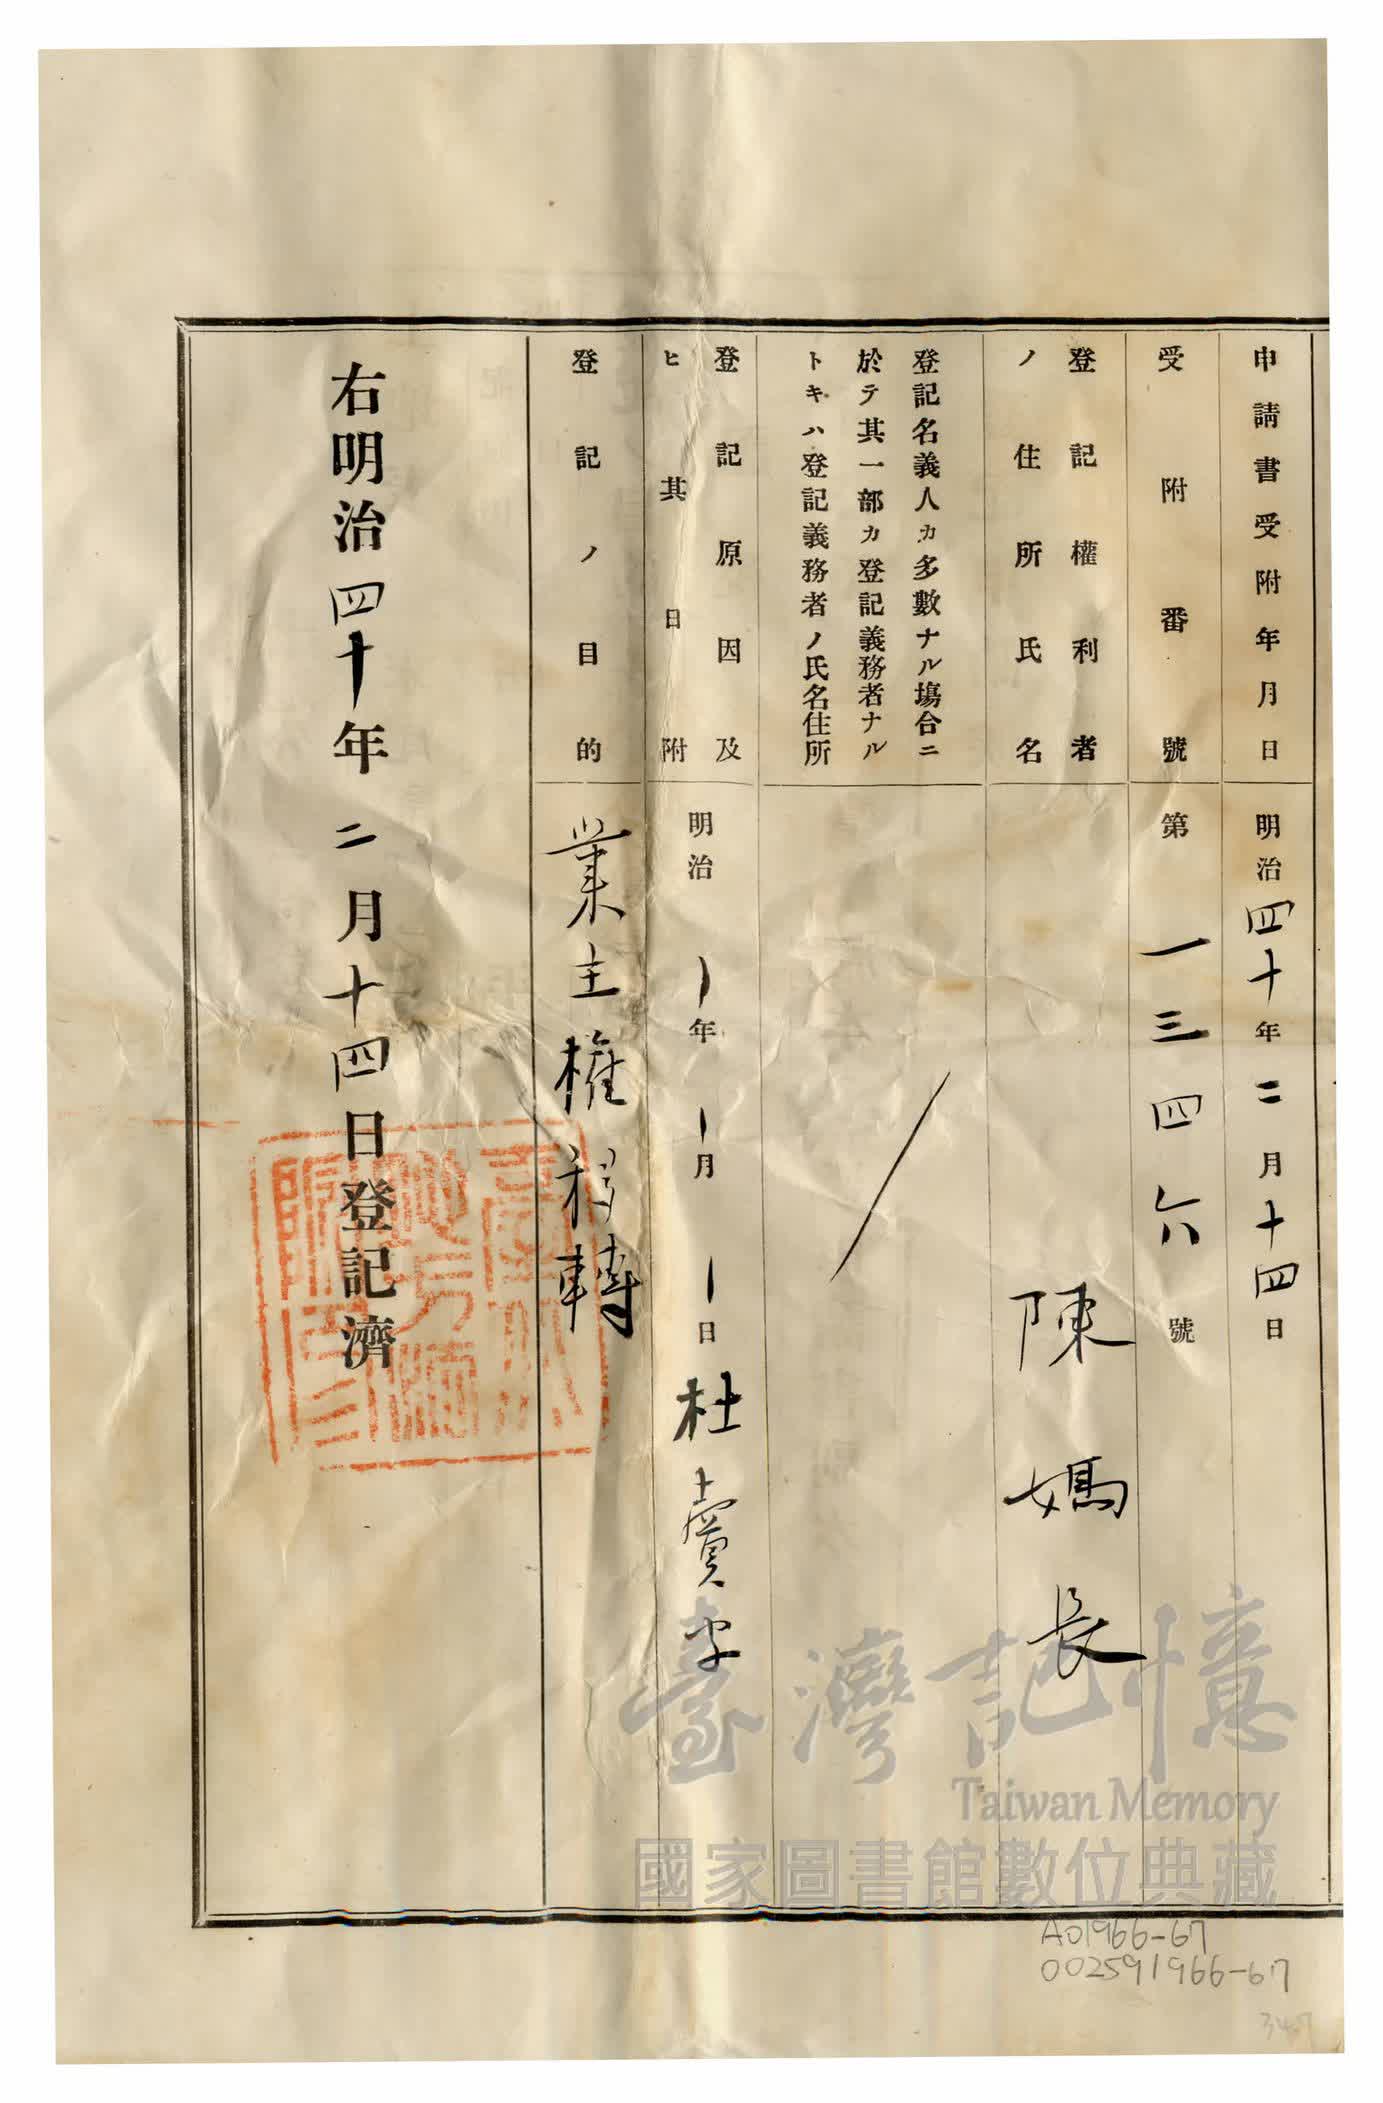 申請書受附年月日 明治四十年二月十四日
受附番號 第一三四六號
登記權利者
ノ住所氏名 陳媽長
登記名義人カ多數ナル場合ニ
於テ其一部カ登記義務者ナル
トキハ登記義務者ノ氏名住所
登記原因及
ヒ其日附 明治 年 月 日 杜賣字
登記ノ目的 業主權移轉
右明治四十年二月十四日登記濟
臺灣記憶
Taiwan Memory
國家圖書館數位典藏
A01966-67
002591966-67
347